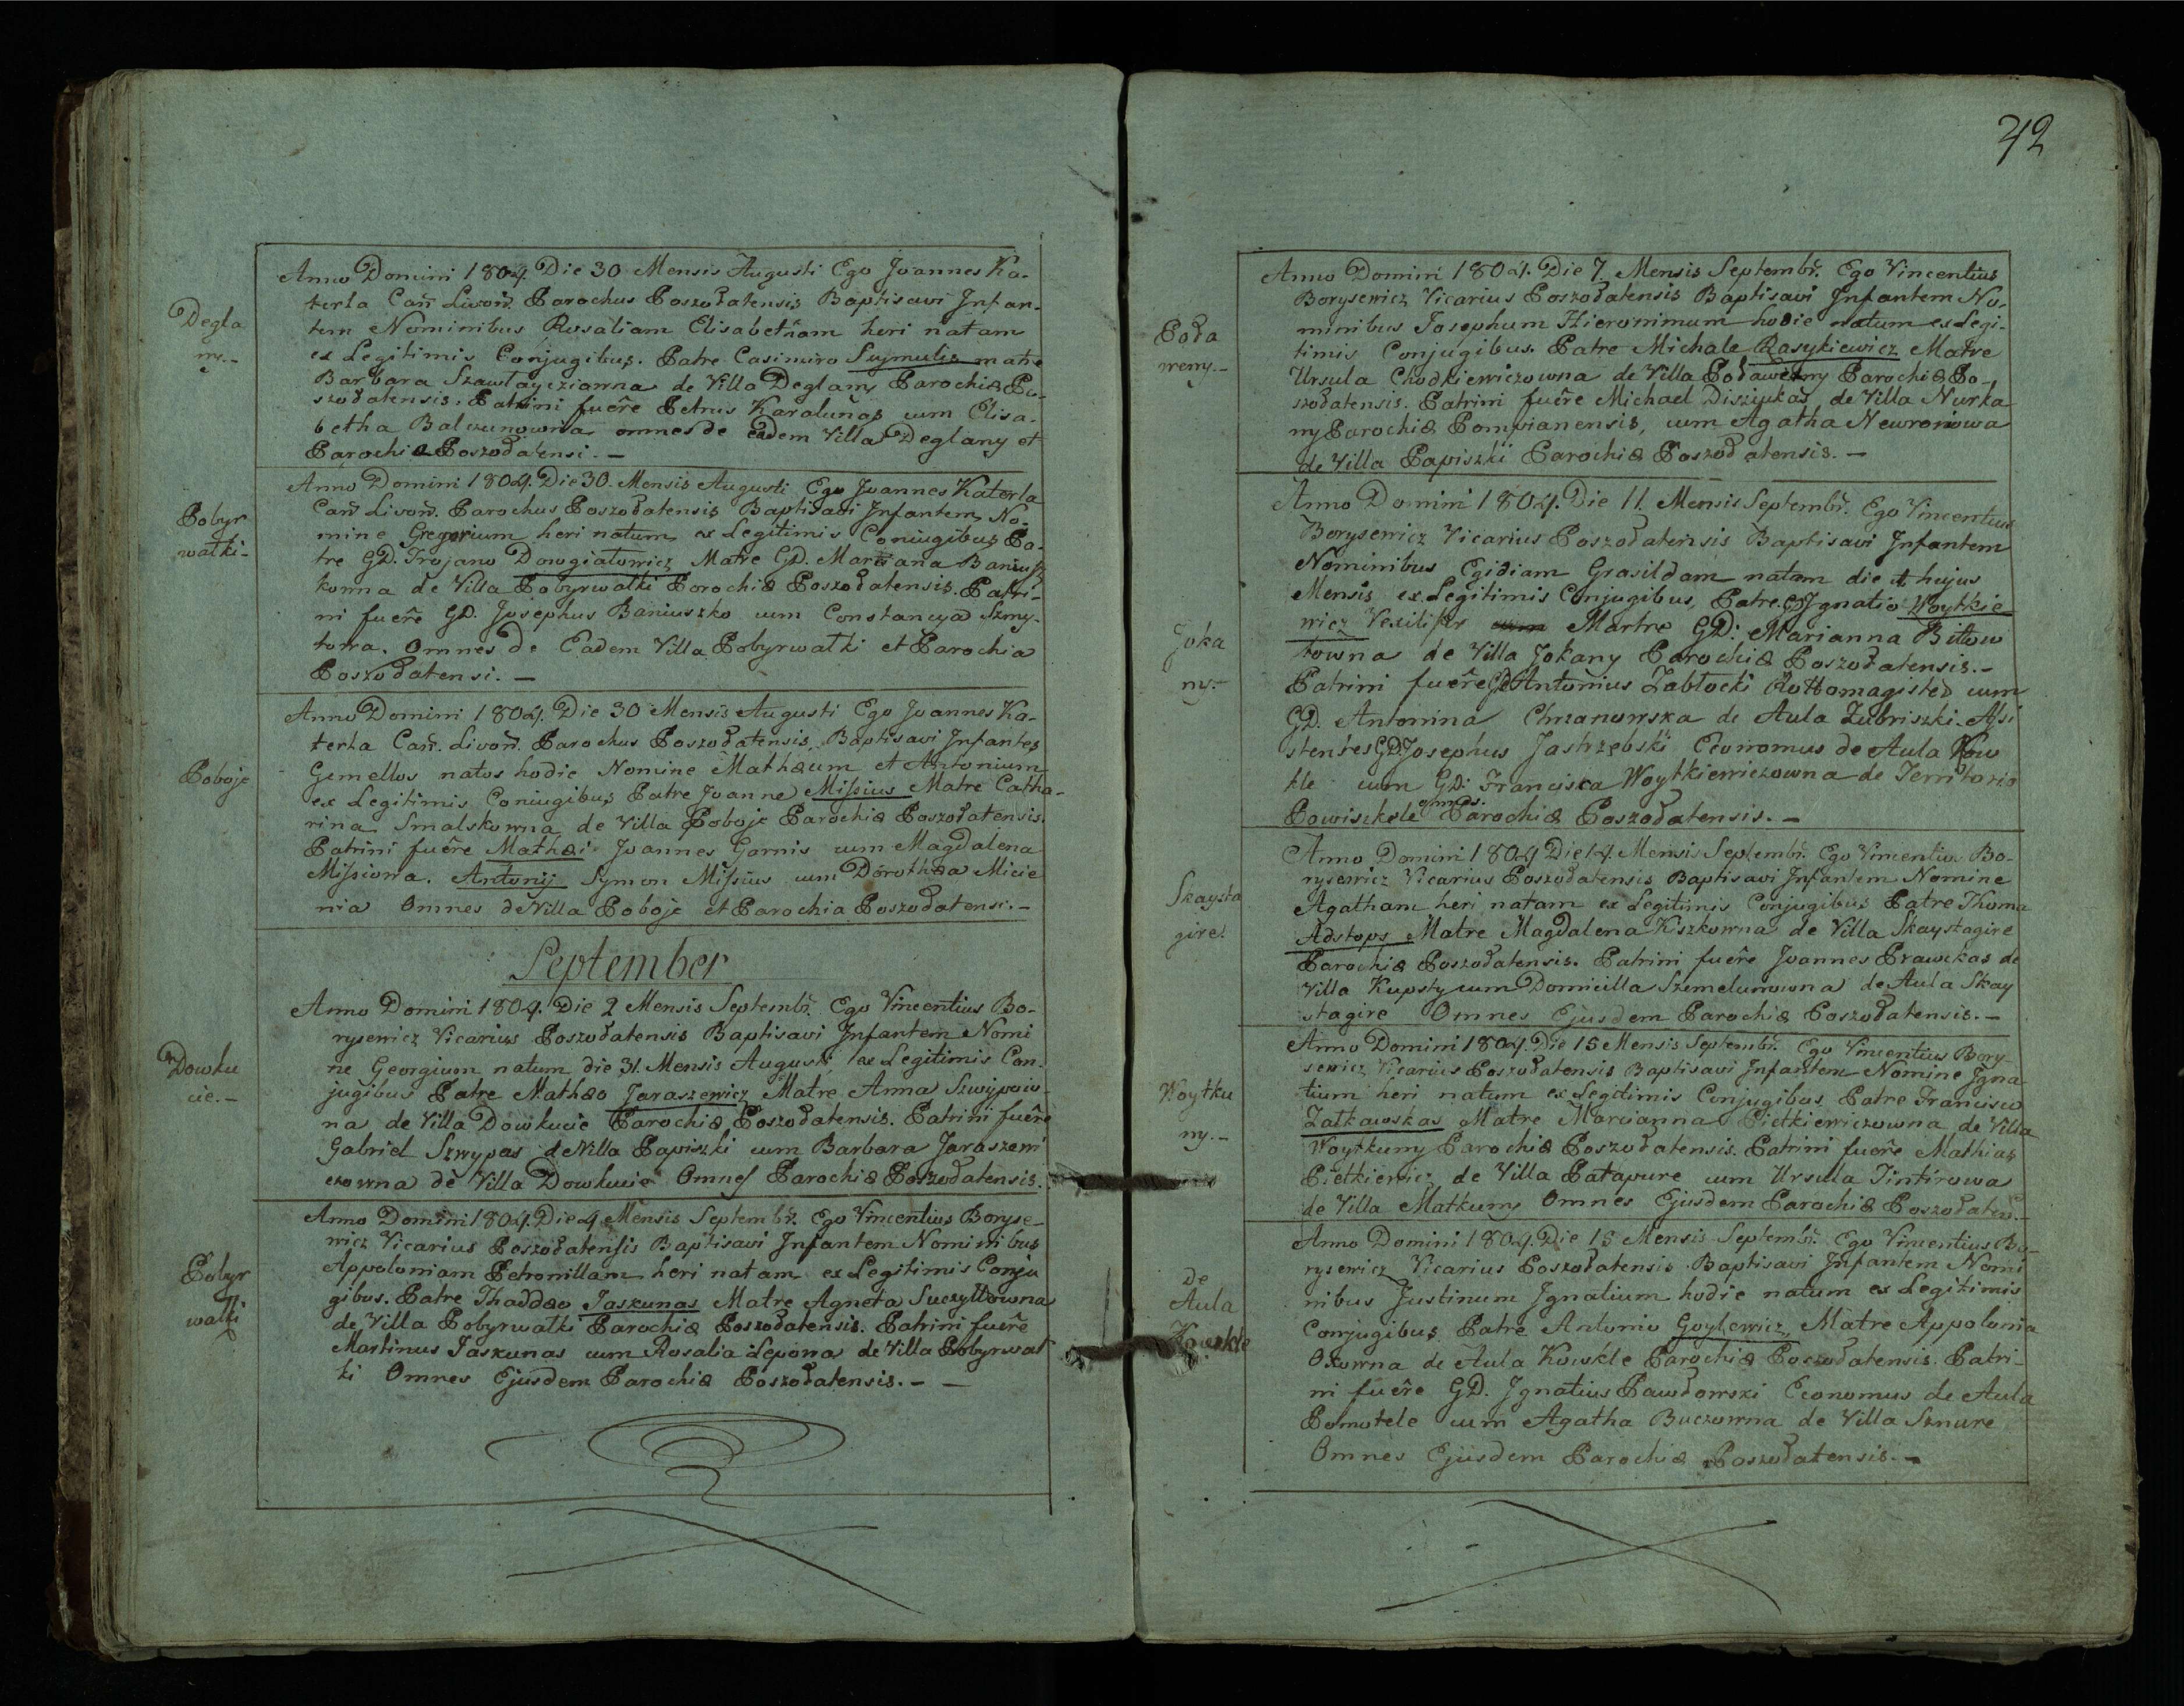 Degla
my.-
Anno Domini 1804. Die 30 Mensis Augusti Ego Joannes Ka-
terla Can. Livon. Parochus Poszodatensis Baptisavi Infan-
tem Nominibus Rosaliam Elisabetham heri natam
ex Legitimis Conjugibus. Patre Casimiro Symulis matre
Barbara de Villa Deglany Parochiæ Po-
szodatensis. Patrini fuêre Petrus Karalunas cum Elisa-
betha Balczunowna omnes de eadem Villa Deglany et
Parochia Poszodatensi. -
Pobyr
watki-
Anno Domini 1804. Die 30. Mensis Augusti Ego Joannes Katerla
Can. Livon. Parochus Poszodatensis Baptisavi Infantem No-
mine Gregorium heri natum ex Legitimis Coniugibus Pa-
tre GD. Trojano Dowgiatowicz Matre GD. Mariana Baniusz
kowna de Villa Pobyrwatki Parochiæ Poszodatensis. Patri-
ni fuêre GD. Josephus Baniuszko cum Constancya Szmy-
towa. Omnes de Eadem Villa Pobyrwatki et Parochia
Poszodatensi. -
Poboje
Anno Domini 1804. Die 30 Mensis Augusti Ego Joannes Ka-
terla Can. Livon. Parochus Poszodatensis Baptisavi Infantes
Gemellos natos hodie Nomine Mathæum et Antonium
ex Legitimis Coniugibus Patre Joanne Missius Matre Catha-
rina Smalskowna de Villa Poboje Parochiæ Poszodatensis.
Patrini fuêre Mathæi Joannes Garnis cum Magdalena
Missiowa. Antonij Symon Missius cum Dorothæa Micie
nia Omnes de Villa Poboje et Parochia Poszodatensi.-
September
Dowku
cie.-
Anno Domini 1804. Die 2 Mensis Septembr. Ego Vincentius Bo-
rysewicz Vicarius Poszodatensis Baptisavi Infantem Nomi
ne Georgium natum die 31. Mensis Augusti, ex Legitimis Con-
jugibus Patre Mathæo Jaraszewicz Matre Anna
na de Villa Dowkucie Parochiæ Poszodatensis. Patrini fuêre
Gabriel Szwypas de Villa Papiszki cum Barbara Jaraszewi
czowna de Villa Dowkucie Omnes Parochiæ Poszodatensis.
Pobyr
watki
Anno Domini 1804. Die 4 Mensis Septembr. Ego Vincentius Boryse-
wicz Vicarius Poszodatensis Baptisavi Infantem Nominibus
Appoloniam Petronillam heri natam ex Legitimis Conju
gibus. Patre Thaddæo Jaskunas Matre Agneta Suczyllowna
de Villa Pobyrwatki Parochiæ Poszodatensis. Patrini fuêre
Martinus Jaskunas cum Rosalia Lepowa de Villa Pobyrwat
ki Omnes Ejusdem Parochiæ Poszodatensis. - -
42
Poda
weny.-
Anno Domini 1804. Die 7. Mensis Septembr. Ego Vincentius
Borysewicz Vicarius Poszodatensis Baptisavi Infantem No-
minibus Josephum Hieronimum hodie natum ex Legi-
timis Conjugibus. Patre Michale Rasykiewicz Matre
Ursula Chodkiewiczowna de Villa Podaweny Parochiæ Po-
szodatensis. Patrini fuêre Michael Diszukas de Villa Nurka
ny Parochiæ Pompianensis, cum Agatha Newroniowa
de Villa Papiszki Parochiæ Poszodatensis. -
Joka
ny.-
Anno Domini 1804. Die 11. Mensis Septembr. Ego Vincentius
Borysewicz Vicarius Poszodatensis Baptisavi Infantem
Nominibus Egidiam Grasildam natam die hujus
Mensis ex Legitimis Conjugibus, Patre GD Ignatio Woytkie
wicz Vexilifer Martre GD: Marianna Bitow
towna de Villa Jokany Parochiæ Poszodatensis.-
Patrini fuêre GD Antonius Zabtocki Rottomagister cum
GD. Antonina Chrzanowska de Aula Zubriszki. Assi
stentes GD. Josephus Jastrzębski Economus de Aula Kow
kle cum GD: Francisca Woytkiewiczowna de Territorio
Powiszkele omnes. Parochiæ Poszodatensis. -
Skaysta
gire.
Anno Domini 1804 Die 14. Mensis Septembr. Ego Vincentius Bo-
rysewicz Vicarius Poszodatensis Baptisavi Infantem Nomine
Agatham heri natam ex Legitimis Conjugibus Patre Thoma
Adstops Matre Magdalena Kiszkowna de Villa Skaystagire
Parochiæ Poszodatensis. Patrini fuêre Joannes Prawckas de
Villa Kupsty cum Domicilla Szemelunowna de Aula Skay
stagire Omnes Ejusdem Parochiæ Poszodatensis. -
Woytku
ny.-
Anno Domini 1804. Die 15 Mensis Septembr. Ego Vincentius Bory-
sewicz Vicarius Poszodatensis Baptisavi Infantem Nomine Igna
tium heri natum ex Legitimis Conjugibus Patre Francisco
Zatkawskas Matre Marcianna Pietkiewiczowna de Villa
Woytkuny Parochiæ Poszodatensis. Patrini fuêre Mathias
Pietkiewicz de Villa Patapure cum Ursula Tintirowa
de Villa Matkuny Omnes Ejusdem Parochiæ Poszodaten.-
de
Aula
Kowkle
Anno Domini 1804. Die 15 Mensis Septembr. Ego Vincentius Bo-
rysewicz Vicarius Poszodatensis Baptisavi Infantem Nomi
nibus Justinum Ignatium hodie natum ex Legitimis
Conjugibus Patre Antonio Goylewicz, Matre Appolonia
Oxowna de Aula Kowkle Parochiæ Poszodatensis. Patri-
ni fuêre GD. Ignatius Pawdowski Economus de Aula
Pomotele cum Agatha Buczowna de Villa Sznure
Omnes Ejusdem Parochiæ Poszodatensis. -